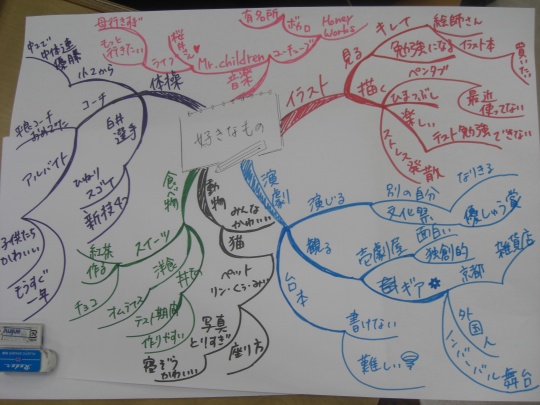 好きなもの
音楽
Mr.children
ライブ
桜井さん
もっと
行きたい
母行きすぎ
ユーチューブ
有名所
ボカロ
Honey
Works
イラスト
見る
キレイ
絵師さん
勉強になる
イラスト本
買いたい
描く
ペンタブ
最近
使ってない
ひまつぶし
楽しい
テスト勉強できない
ストレス発散
演劇
演じる
別の自分
なりきる
文化祭
優しゅう賞
観る
面白い
壱劇屋
独創的
ギア
京都
雑貨店
外国人
ノンバーバル
舞台
台本
書けない
難しい
動物
みんな
かわいい
猫
ペット
リン・くぅ・みぃ
写真
とりすぎ
座り方
寝ぞう
かわいい
食べ物
スイーツ
紅茶
作る
チョコ
洋食
オムライス
丼もの
テスト期間
作りやすい
体操
小2から
中体連
優勝
コーチ
アルバイト
子供たち
かわいい
もうすぐ
一年
白井
選手
ひねり
スゴイ
新技4つ